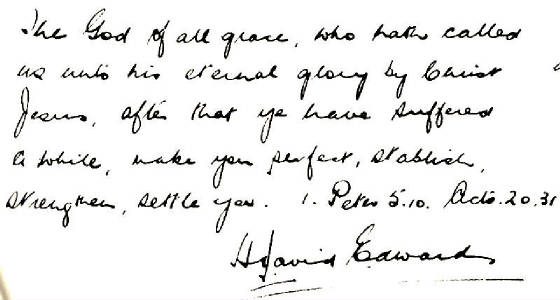 The God of all grace, who hath called
us unto his eternal glory by Christ
Jesus, after that ye have suffered
a while, make you perfect, stablish,
strengthen, settle you. 1. Peter 5.10. Acts. 20.31
H David Edwards